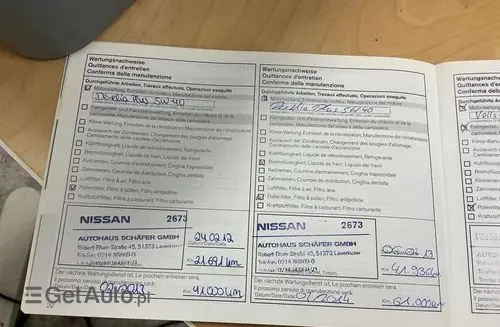 Wartungsnachweise
Quittances d'entretien
Conferma della manutenzione
Durchgeführte Arbeiten, Travaux effectués, Operazioni eseguite
Motorwartung, Entretien du moteur, Manutenzione del motore
Plus 5W40
Fahrgestell- und Karosseriewartung, Entretien du châssis et de la
carrosserie, Manutenzione del telaio e della carrozzeria
Klima-Wartung, Entretien du climatiseur, Manutenzione del climatizzatore
Austausch der Zündkerzen, Changement des bougies d'allumage,
Cambiamento delle candele d'accensione
Kühlflüssigkeit, Liquide de refroidissement, Refrigerante
Bremsflüssigkeit, Liquide de frein, Liquido dei freni
Keilriemen, Courroie d'entraînement, Cinghia trapezoidale
Zahnriemen, Courroie crantée, Cinghia dentata
Luftfilter, Filtre à air, Filtro aria
Pollenfilter, Filtre à pollen, Filtro antipolline
Kraftstofffilter, Filtre à carburant, Filtro carburante
NISSAN 2673
AUTOHAUS SCHÄFER GMBH
Robert-Blum-Straße 45, 51373 Leverkusen
Telefon 0214
24.02.12
Datum/Date/Data
Km 21.691 km
Der nächste Wartungsdienst ist, Le prochain entretien sera,
Il prossimo servizio di manutenzione sarà:
Datum/Date/Data 02/2013 Km 41.000 km
50
Wartungsnachweise
Quittances d'entretien
Conferma della manutenzione
Durchgeführte Arbeiten, Travaux effectués, Operazioni eseguite
Motorwartung, Entretien du moteur, Manutenzione del motore
Plus 5W40
Fahrgestell- und Karosseriewartung, Entretien du châssis et de la
carrosserie, Manutenzione del telaio e della carrozzeria
Klima-Wartung, Entretien du climatiseur, Manutenzione del climatizzatore
Austausch der Zündkerzen, Changement des bougies d'allumage,
Cambiamento delle candele d'accensione
Kühlflüssigkeit, Liquide de refroidissement, Refrigerante
Bremsflüssigkeit, Liquide de frein, Liquido dei freni
Keilriemen, Courroie d'entraînement, Cinghia trapezoidale
Zahnriemen, Courroie crantée, Cinghia dentata
Luftfilter, Filtre à air, Filtro aria
Pollenfilter, Filtre à pollen, Filtro antipolline
Kraftstofffilter, Filtre à carburant, Filtro carburante
NISSAN 2673
AUTOHAUS SCHÄFER GMBH
Robert-Blum-Straße 45, 51373 Leverkusen
Telefon 0214
Datum/Date/Data
Der nächste Wartungsdienst ist, Le prochain entretien sera,
Il prossimo servizio di manutenzione sarà:
Datum/Date/Data 02/2014 Km 61.000 km
GetAuto.pl